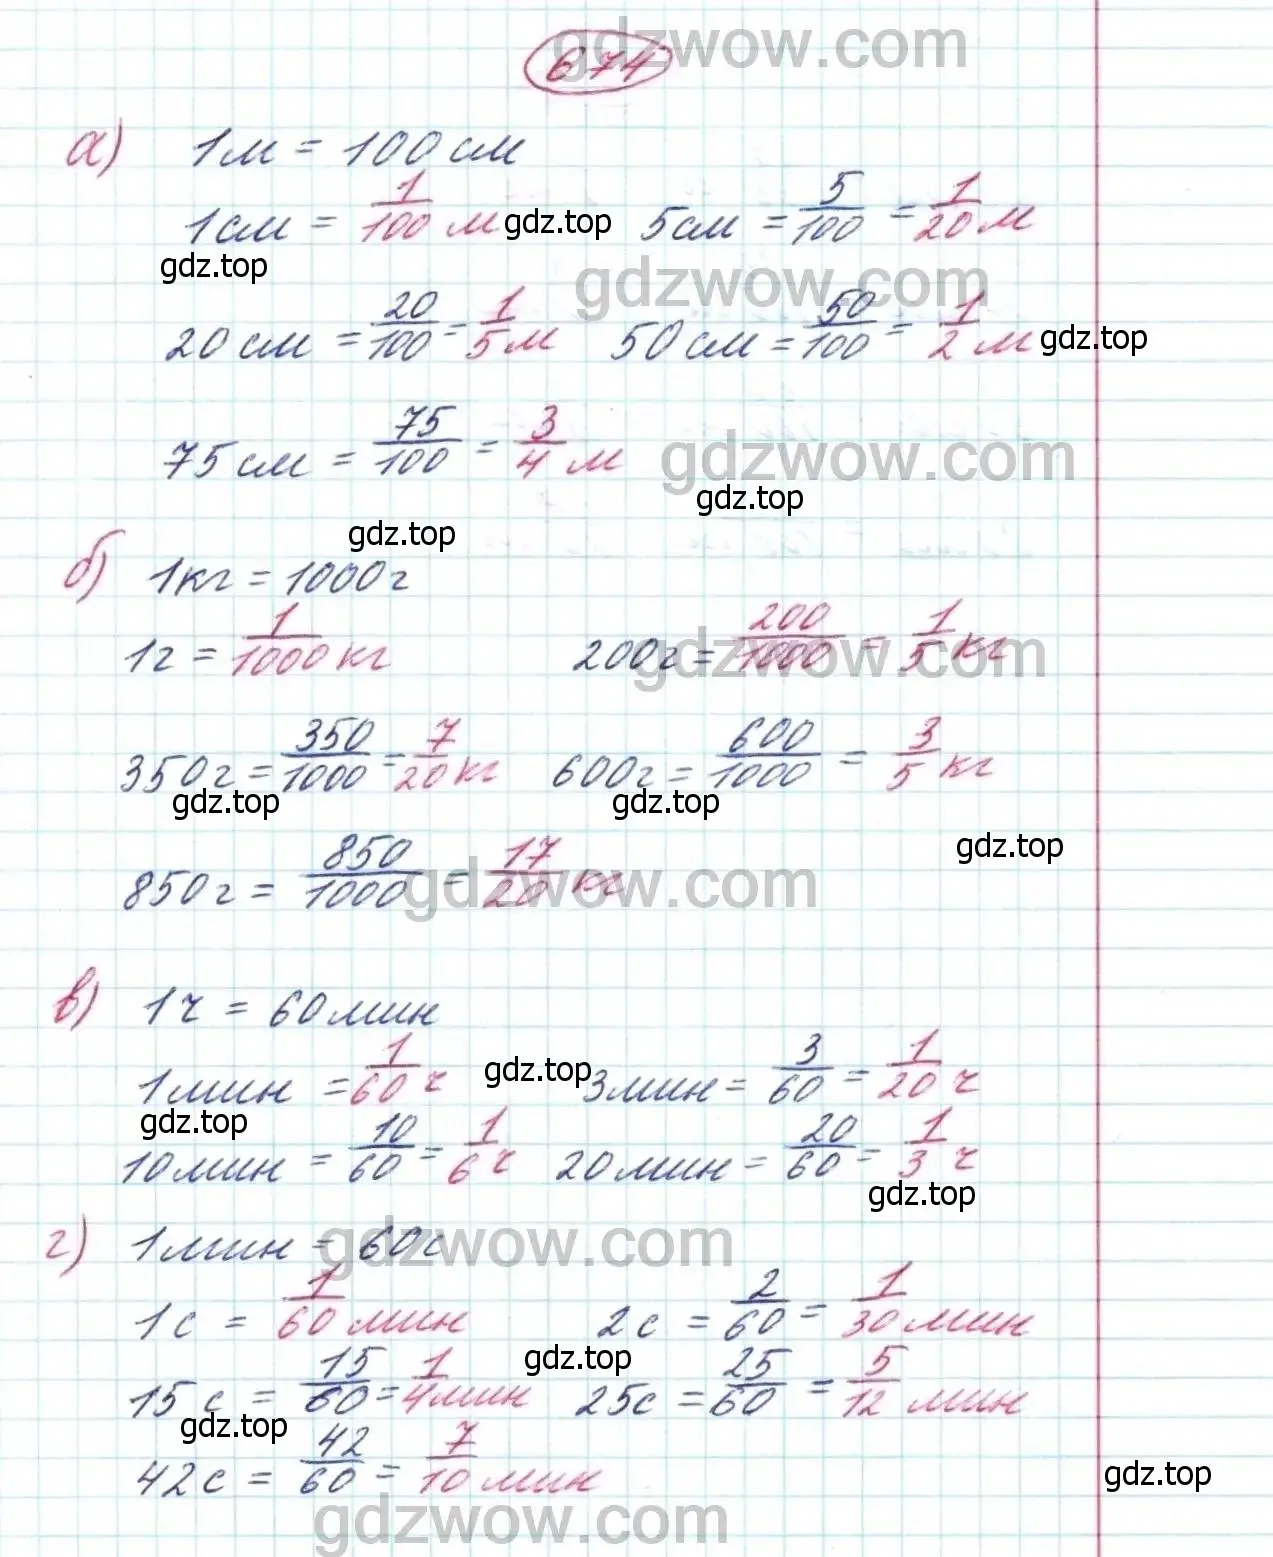 gdzwow.com
674
а) 1м = 100см
1см = 1/100 м gdz.top 5см = 5/100 = 1/20 м
gdz.top
gdzwow.com
20см = 20/100 = 1/5 м 50см = 50/100 = 1/2 м gdz.top
75см = 75/100 = 3/4 м gdzwow.com
gdz.top
gdz.top
б) 1кг = 1000г
1г = 1/1000 кг 200г = 200/1000 = 1/5 кг
gdzwow.com
350г = 350/1000 = 7/20 кг 600г = 600/1000 = 3/5 кг
gdz.top gdz.top
gdz.top
850г = 850/1000 = 17/20 кг
gdzwow.com
в) 1ч = 60мин
1мин = 1/60 ч gdz.top 3мин = 3/60 = 1/20 ч
gdz.top
10мин = 10/60 = 1/6 ч 20мин = 20/60 = 1/3 ч
gdz.top
г) 1мин = 60с
gdzwow.com
1с = 1/60 мин 2с = 2/60 = 1/30 мин
gdz.top
15с = 15/60 = 1/4 мин 25с = 25/60 = 5/12 мин
gdz.top
42с = 42/60 = 7/10 мин
gdz.top
gdzwow.com